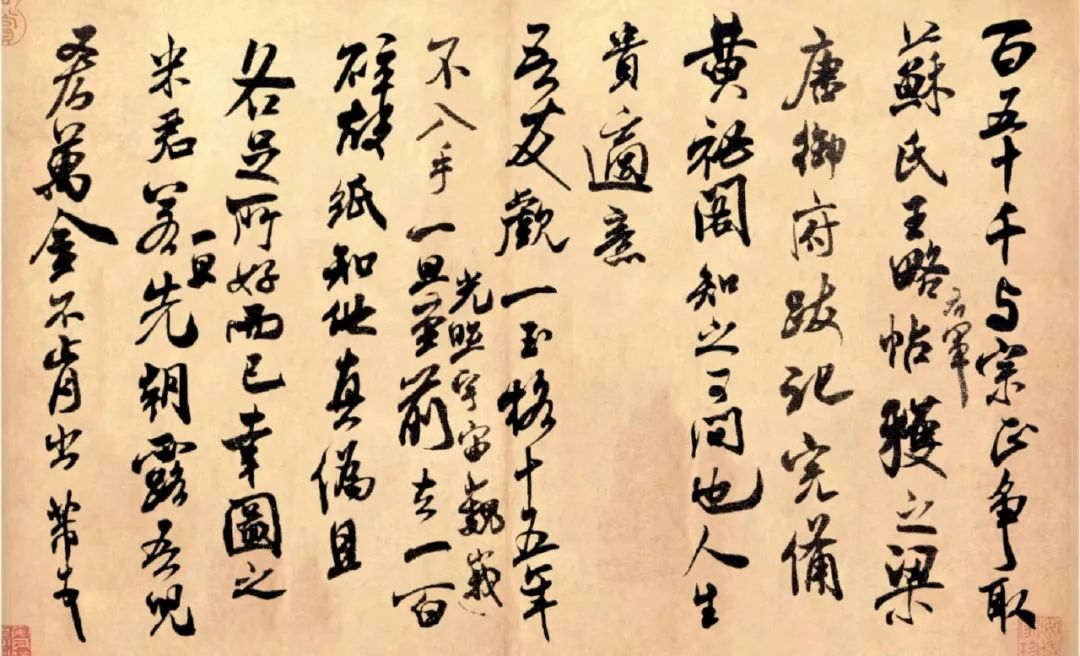 百五十千与宗正争取
蘇氏王略右軍帖獲之梁
唐御府跋記完備
黄祕閣知之可問也人生
貴適意
吾友覷一玉格十五年
不入手一旦光照宇宙巍峩至前去一百
碎故紙知他真偽且
各足所好而已幸圖之
米君若一旦先朝露吾兒
吝萬金不肯出芾